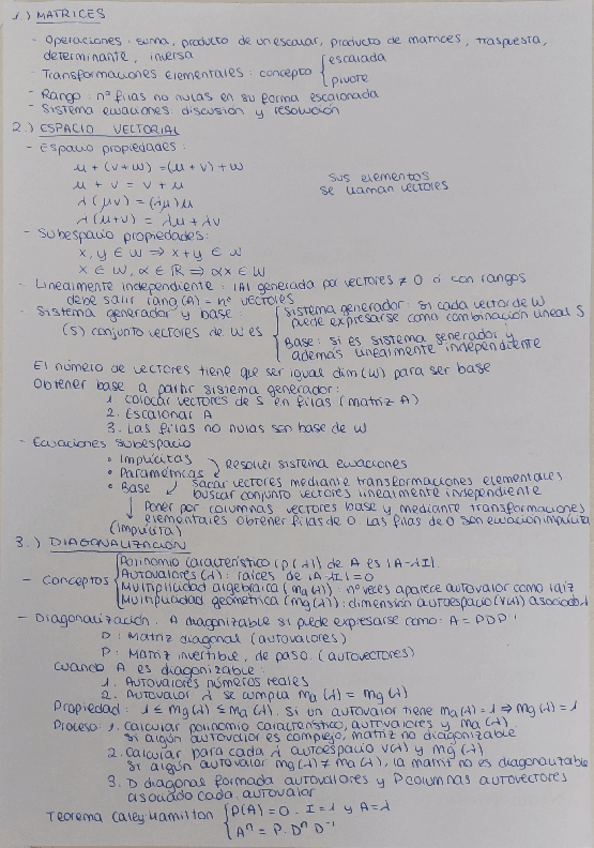 1.) MATRICES
- Operaciones: suma, producto de un escalar, producto de matrices, traspuesta,
determinante, inversa
- Transformaciones elementales: concepto { escalada
pivote
- Rango: nº filas no nulas en su forma escalonada
- Sistema ecuaciones: discusión y resolución
2.) ESPACIO VECTORIAL
- Espacio propiedades:
u + (v+w) = (u+v) + w
u + v = v + u
λ(μv) = (λμ)u
λ(u+v) = λu + λv
sus elementos
se llaman vectores
- Subespacio propiedades:
x, y ∈ W ⇒ x+y ∈ W
x ∈ W, α ∈ ℝ ⇒ αx ∈ W
- Linealmente independiente: |A| generada por vectores ≠ 0 ó con rangos
debe salir rang(A) = nº vectores
- Sistema generador y base:
(S) conjunto vectores de W es
Sistema generador: si cada vector de W
puede expresarse como combinación lineal S
Base: si es sistema generador y
además linealmente independiente
El número de vectores tiene que ser igual dim(W) para ser base
Obtener base a partir sistema generador:
1. Colocar vectores de S en filas (matriz A)
2. Escalonar A
3. Las filas no nulas son base de W
- Ecuaciones subespacio
• Implícitas
• Paramétricas
Resolver sistema ecuaciones
• Base
Sacar vectores mediante transformaciones elementales
buscar conjunto vectores linealmente independiente
↓ Poner por columnas vectores base y mediante transformaciones
elementales obtener filas de 0. Las filas de 0 son ecuación implícita
(Implícita)
3.) DIAGONALIZACIÓN
- Conceptos
Polinomio característico (p(λ)) de A es |A-λI|.
Autovalores (λ): raíces de |A-λI| = 0
Multiplicidad algebraica (ma(λ)): nº veces aparece autovalor como raíz
Multiplicidad geométrica (mg(λ)): dimensión autoespacio (V(λ)) asociado λ
- Diagonalización. A diagonizable si puede expresarse como: A = PDP⁻¹
D: Matriz diagonal (autovalores)
P: Matriz invertible, de paso. (autovectores)
Cuando A es diagonizable:
1. Autovalores números reales
2. Autovalor λ se cumpla ma(λ) = mg(λ)
Propiedad: 1 ≤ mg(λ) ≤ ma(λ). Si un autovalor tiene ma(λ) = 1 ⇒ mg(λ) = 1
Proceso: 1. Calcular polinomio característico, autovalores y ma(λ).
si algún autovalor es complejo, matriz no diagonizable
2. Calcular para cada λ autoespacio V(λ) y mg(λ)
si algún autovalor mg(λ) ≠ ma(λ), la matriz no es diagonalizable
3. D diagonal formada autovalores y P columnas autovectores
asociado cada autovalor
Teorema Caley-Hamilton { P(A) = 0. I = 1 y A = λ
Aⁿ = P · Dⁿ D⁻¹